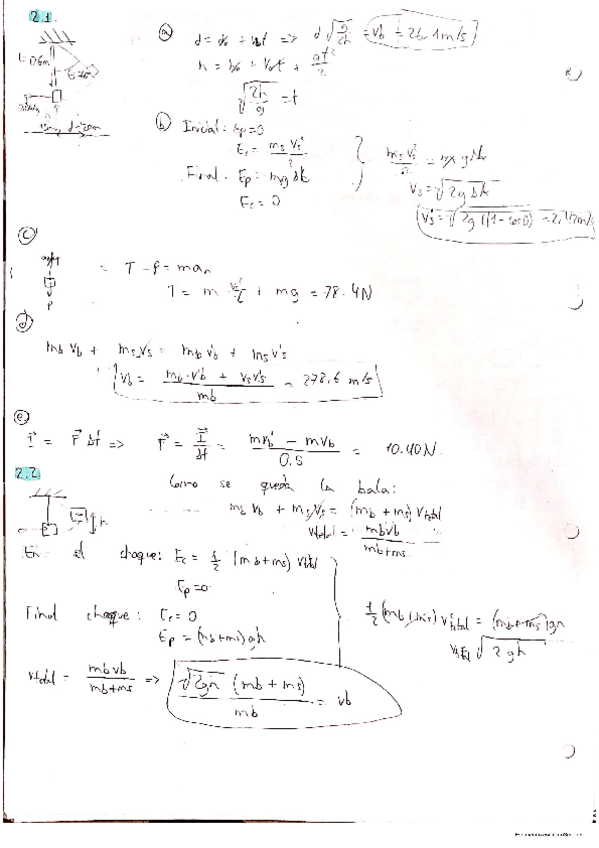 2.1.
(a) d = d₀ + v₀t => d √(g/2h) = v'b = 26.1 m/s
h = h₀ + v₀t + gt²/2
√(2h/g) = t
(b) Inicial: Ep=0
Ec = ms v's²/2
Final: Ep = msgΔh
Ec = 0
Vs = √(2gΔh)
(c)
= T - P = man
T = m v²/L + mg = 78.4N
(d)
mb vb + ms vs = mb v'b + ms v's
vb = (mb·v'b + vs v's)/mb = 278.6 m/s
(e)
I = F Δt => F = I/Δt = (mv'b - mvb)/0.5 = 10.40N.
2.2
Como se queda la bala:
mb vb + ms vs = (mb + ms) vtotal
vtotal = mbvb/(mb+ms)
En el choque: Ec = 1/2 (mb+ms) vtotal
Ep=0
Final choque: Ec = 0
Ep = (mb+ms)gh
1/2 (mb+ms) v²total = (mb+ms)gh
vtotal √(2gh)
vtotal = mbvb/(mb+ms) => √(2gh) (mb+ms)/mb = vb